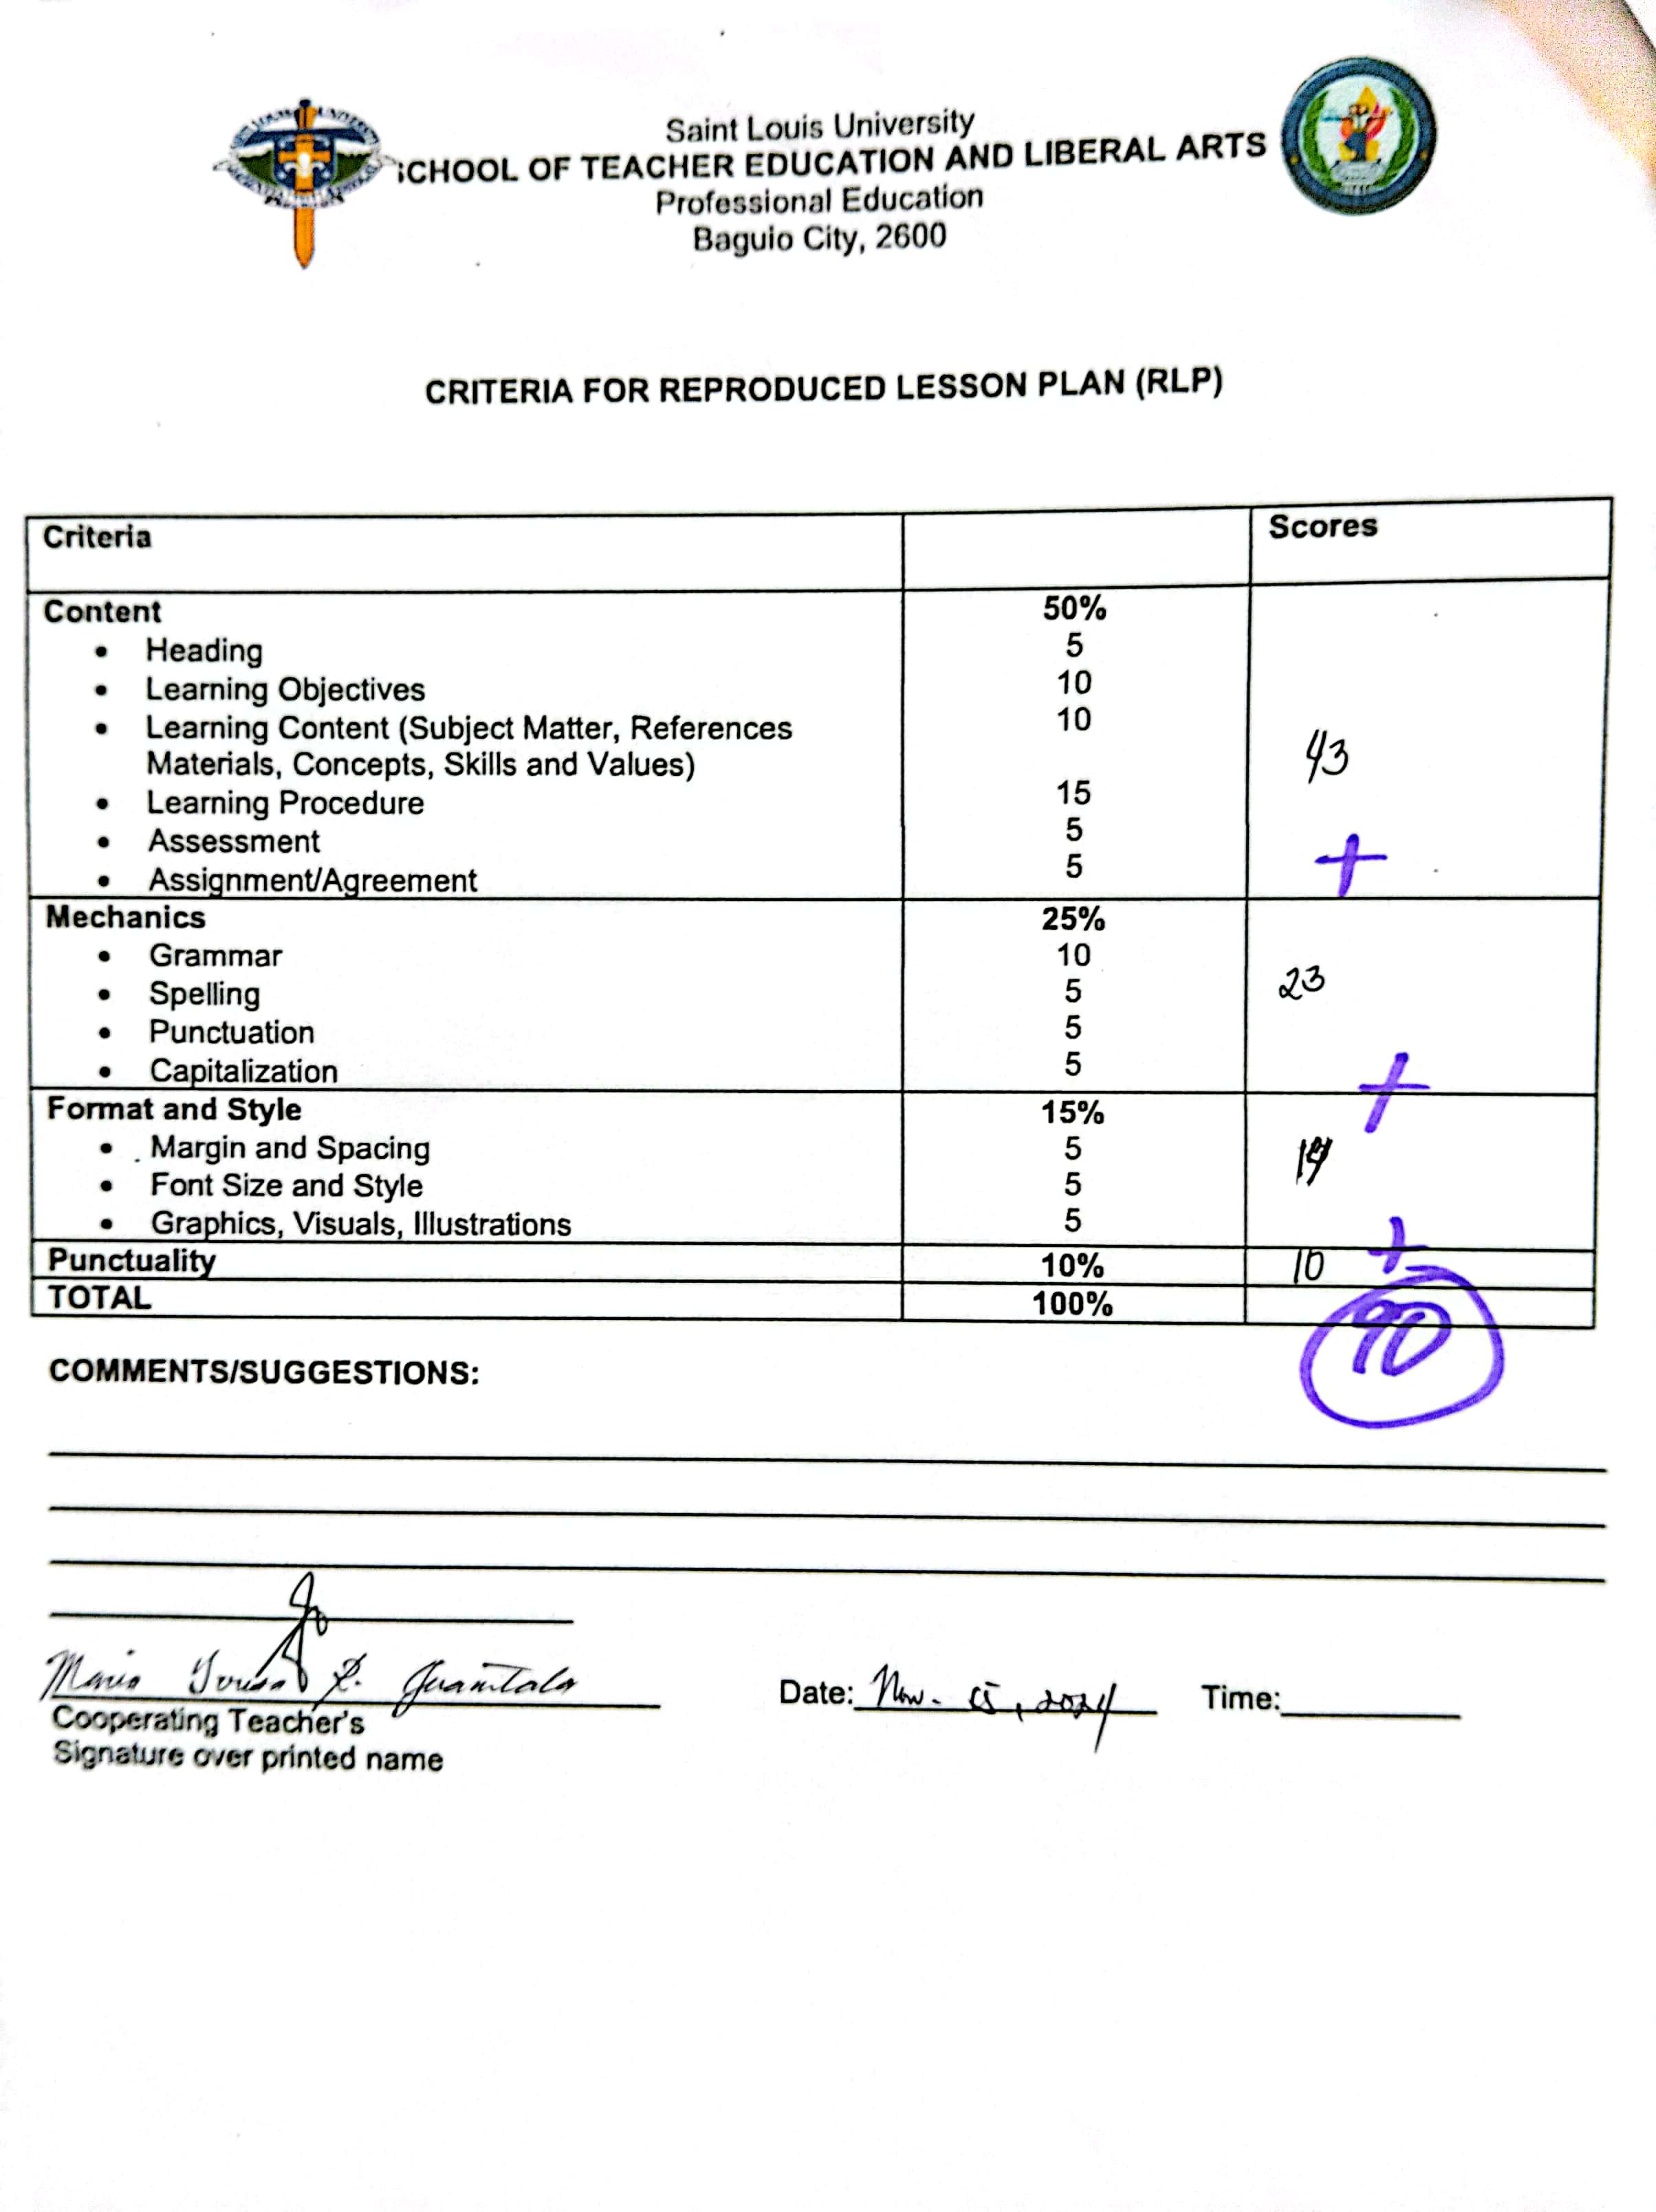 Saint Louis University
SCHOOL OF TEACHER EDUCATION AND LIBERAL ARTS
Professional Education
Baguio City, 2600
CRITERIA FOR REPRODUCED LESSON PLAN (RLP)
Criteria Scores
Content 50%
• Heading 5
• Learning Objectives 10
• Learning Content (Subject Matter, References 10
Materials, Concepts, Skills and Values) 43
• Learning Procedure 15
• Assessment 5 +
• Assignment/Agreement 5
Mechanics 25%
• Grammar 10
• Spelling 5 23
• Punctuation 5
• Capitalization 5 +
Format and Style 15%
• Margin and Spacing 5 14
• Font Size and Style 5
• Graphics, Visuals, Illustrations 5 +
Punctuality 10% 10
TOTAL 100% 90
COMMENTS/SUGGESTIONS:
Date: Nov. 15, 2024 Time:
Cooperating Teacher's
Signature over printed name